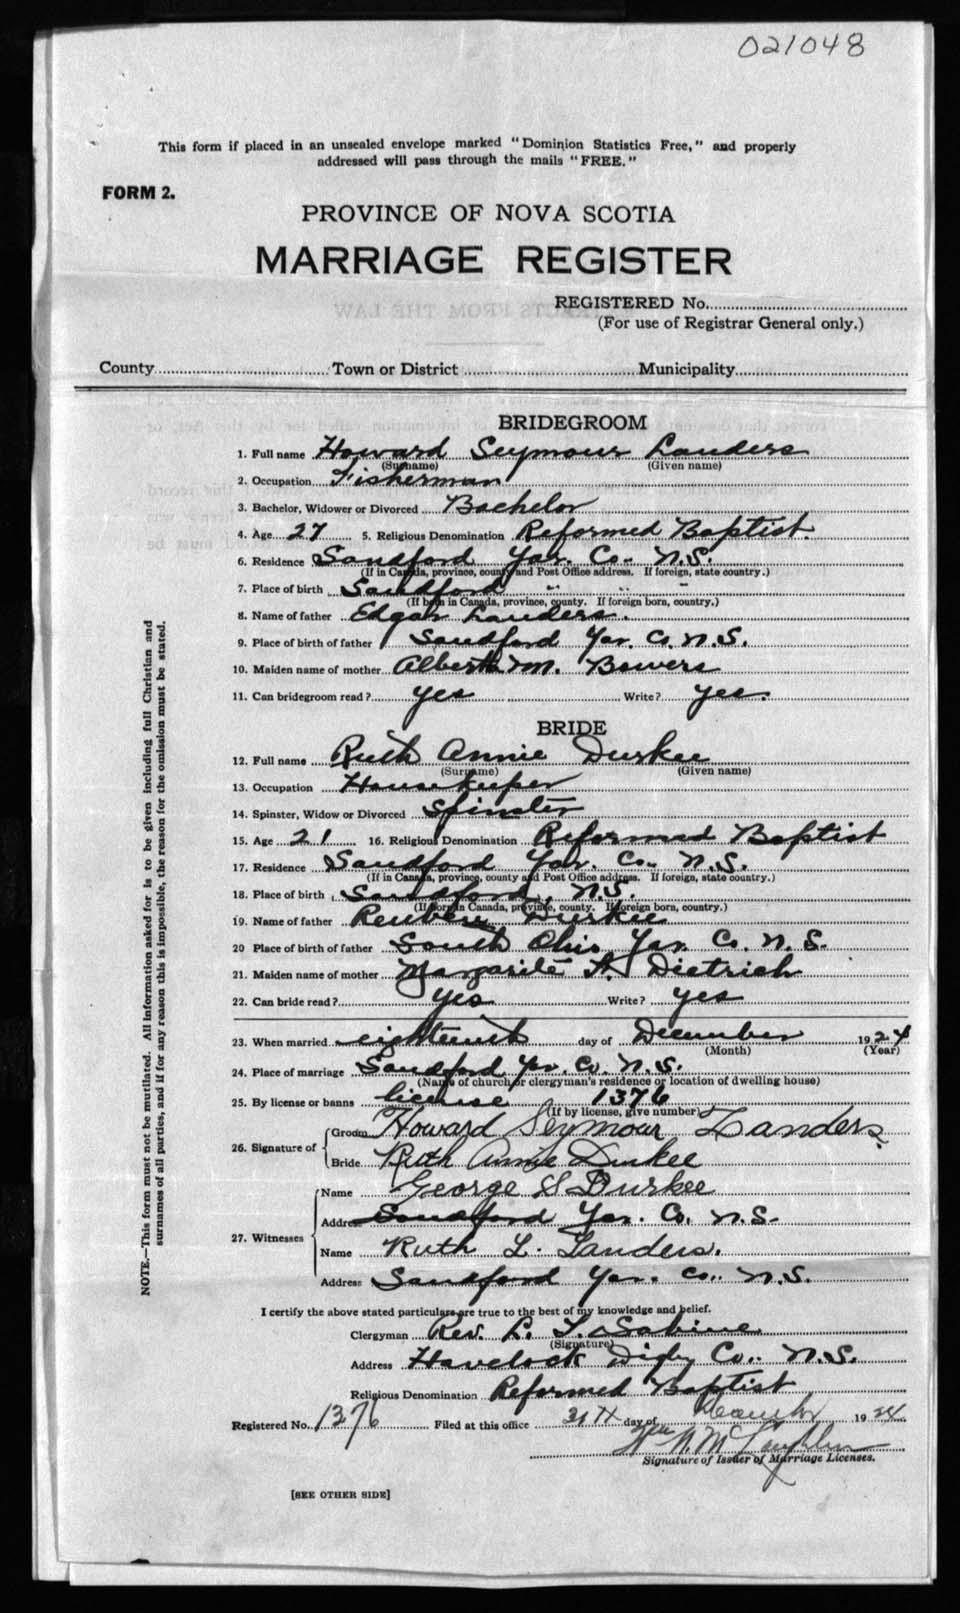 021048
This form if placed in an unsealed envelope marked "Dominion Statistics Free," and properly
addressed will pass through the mails "FREE."
FORM 2.
PROVINCE OF NOVA SCOTIA
MARRIAGE REGISTER
REGISTERED No.
(For use of Registrar General only.)
County Town or District Municipality
BRIDEGROOM
1. Full name Howard Seymour Landers
(Surname) (Given name)
2. Occupation Fisherman
3. Bachelor, Widower or Divorced Bachelor
4. Age 27 5. Religious Denomination Reformed Baptist.
6. Residence Sandford Yar. Co. N.S.
(If in Canada, province, county and Post Office address. If foreign, state country.)
7. Place of birth Sandford " " "
(If born in Canada, province, county. If foreign born, country.)
8. Name of father Edgar Landers.
9. Place of birth of father Sandford Yar. Co. N.S.
10. Maiden name of mother M. Bowers
11. Can bridegroom read? yes Write? yes.
BRIDE
12. Full name Ruth Annie Durkee
(Surname) (Given name)
13. Occupation Housekeeper
14. Spinster, Widow or Divorced Spinster
15. Age 21 16. Religious Denomination Reformed Baptist
17. Residence Sandford Yar. Co. N.S.
(If in Canada, province, county and Post Office address. If foreign, state country.)
18. Place of birth Sandford, N.S.
(If born in Canada, province, county. If foreign born, country.)
19. Name of father Reuben Durkee
20 Place of birth of father South Ohio Yar. Co. N.S.
21. Maiden name of mother Margarite A. Dietrich
22. Can bride read? yes Write? yes
23. When married eighteenth day of December 1924
(Month) (Year)
24. Place of marriage Sandford Yar. Co. N.S.
(Name of church or clergyman's residence or location of dwelling house)
25. By license or banns license 1376
(If by license, give number)
26. Signature of Groom Howard Seymour Landers
Bride Ruth Annie Durkee
27. Witnesses Name George Durkee
Address Sandford Yar. Co. N.S.
Name Ruth L. Landers.
Address Sandford Yar. Co. N.S.
I certify the above stated particulars are true to the best of my knowledge and belief.
Clergyman Rev. L. T. Sabine
(Signature)
Address Havelock Digby Co. N.S.
Religious Denomination Reformed Baptist
Registered No. 1376 Filed at this office day of December 1924
Signature of Issuer of Marriage Licenses.
[SEE OTHER SIDE]
NOTE.—This form must not be mutilated. All information asked for is to be given including full Christian and
surnames of all parties, and if for any reason this is impossible, the reason for the omission must be stated.